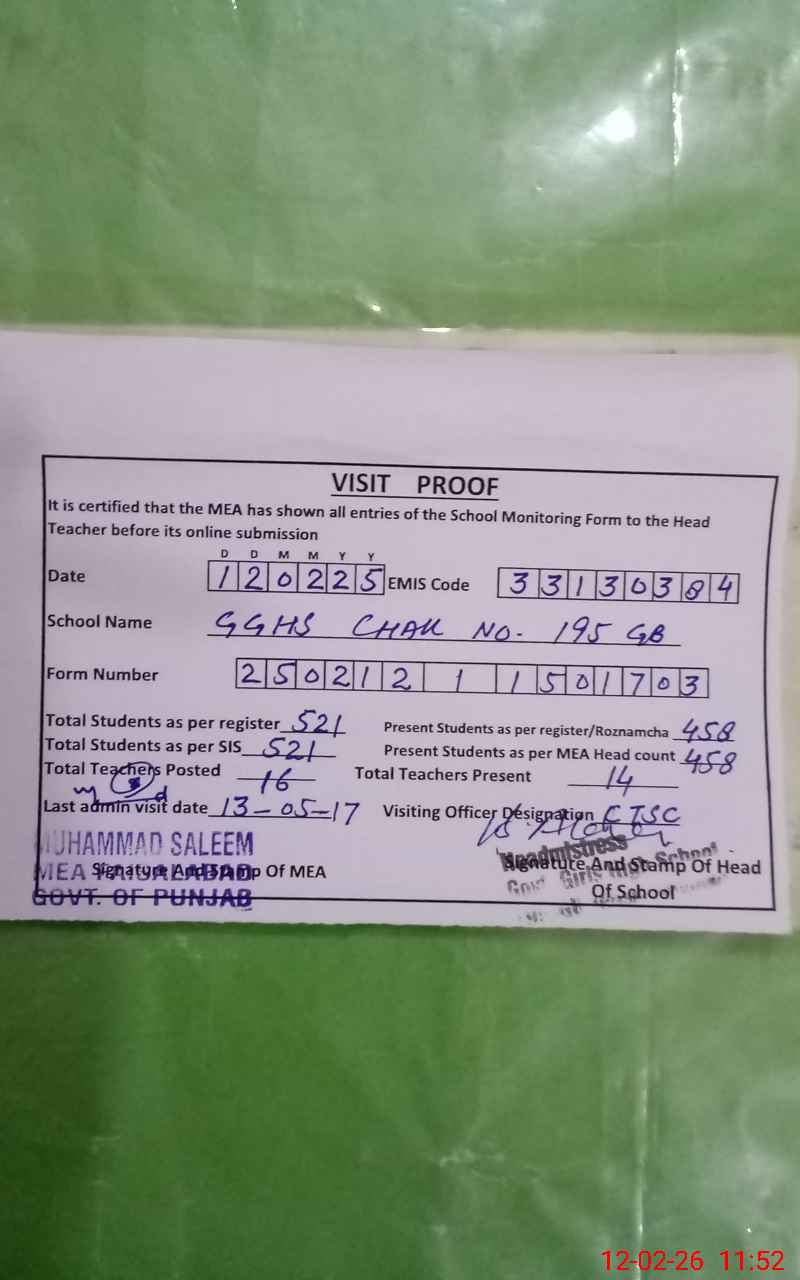 VISIT PROOF
It is certified that the MEA has shown all entries of the School Monitoring Form to the Head
Teacher before its online submission
D D M M Y Y
Date 1 2 0 2 2 5 EMIS Code 3 3 1 3 0 3 8 4
School Name GGHS CHAK NO. 195 GB
Form Number 2 5 0 2 1 2 1 1 5 0 1 7 0 3
Total Students as per register 521 Present Students as per register/Roznamcha 458
Total Students as per SIS 521 Present Students as per MEA Head count 458
Total Teachers Posted 16 Total Teachers Present 14
Last admin visit date 13-05-17 Visiting Officer Designation
MUHAMMAD SALEEM
MEA
Signature And Stamp Of MEA
GOVT. OF PUNJAB
Headmistress
Govt Girls High School
Signature And Stamp Of Head
Of School
12-02-26 11:52